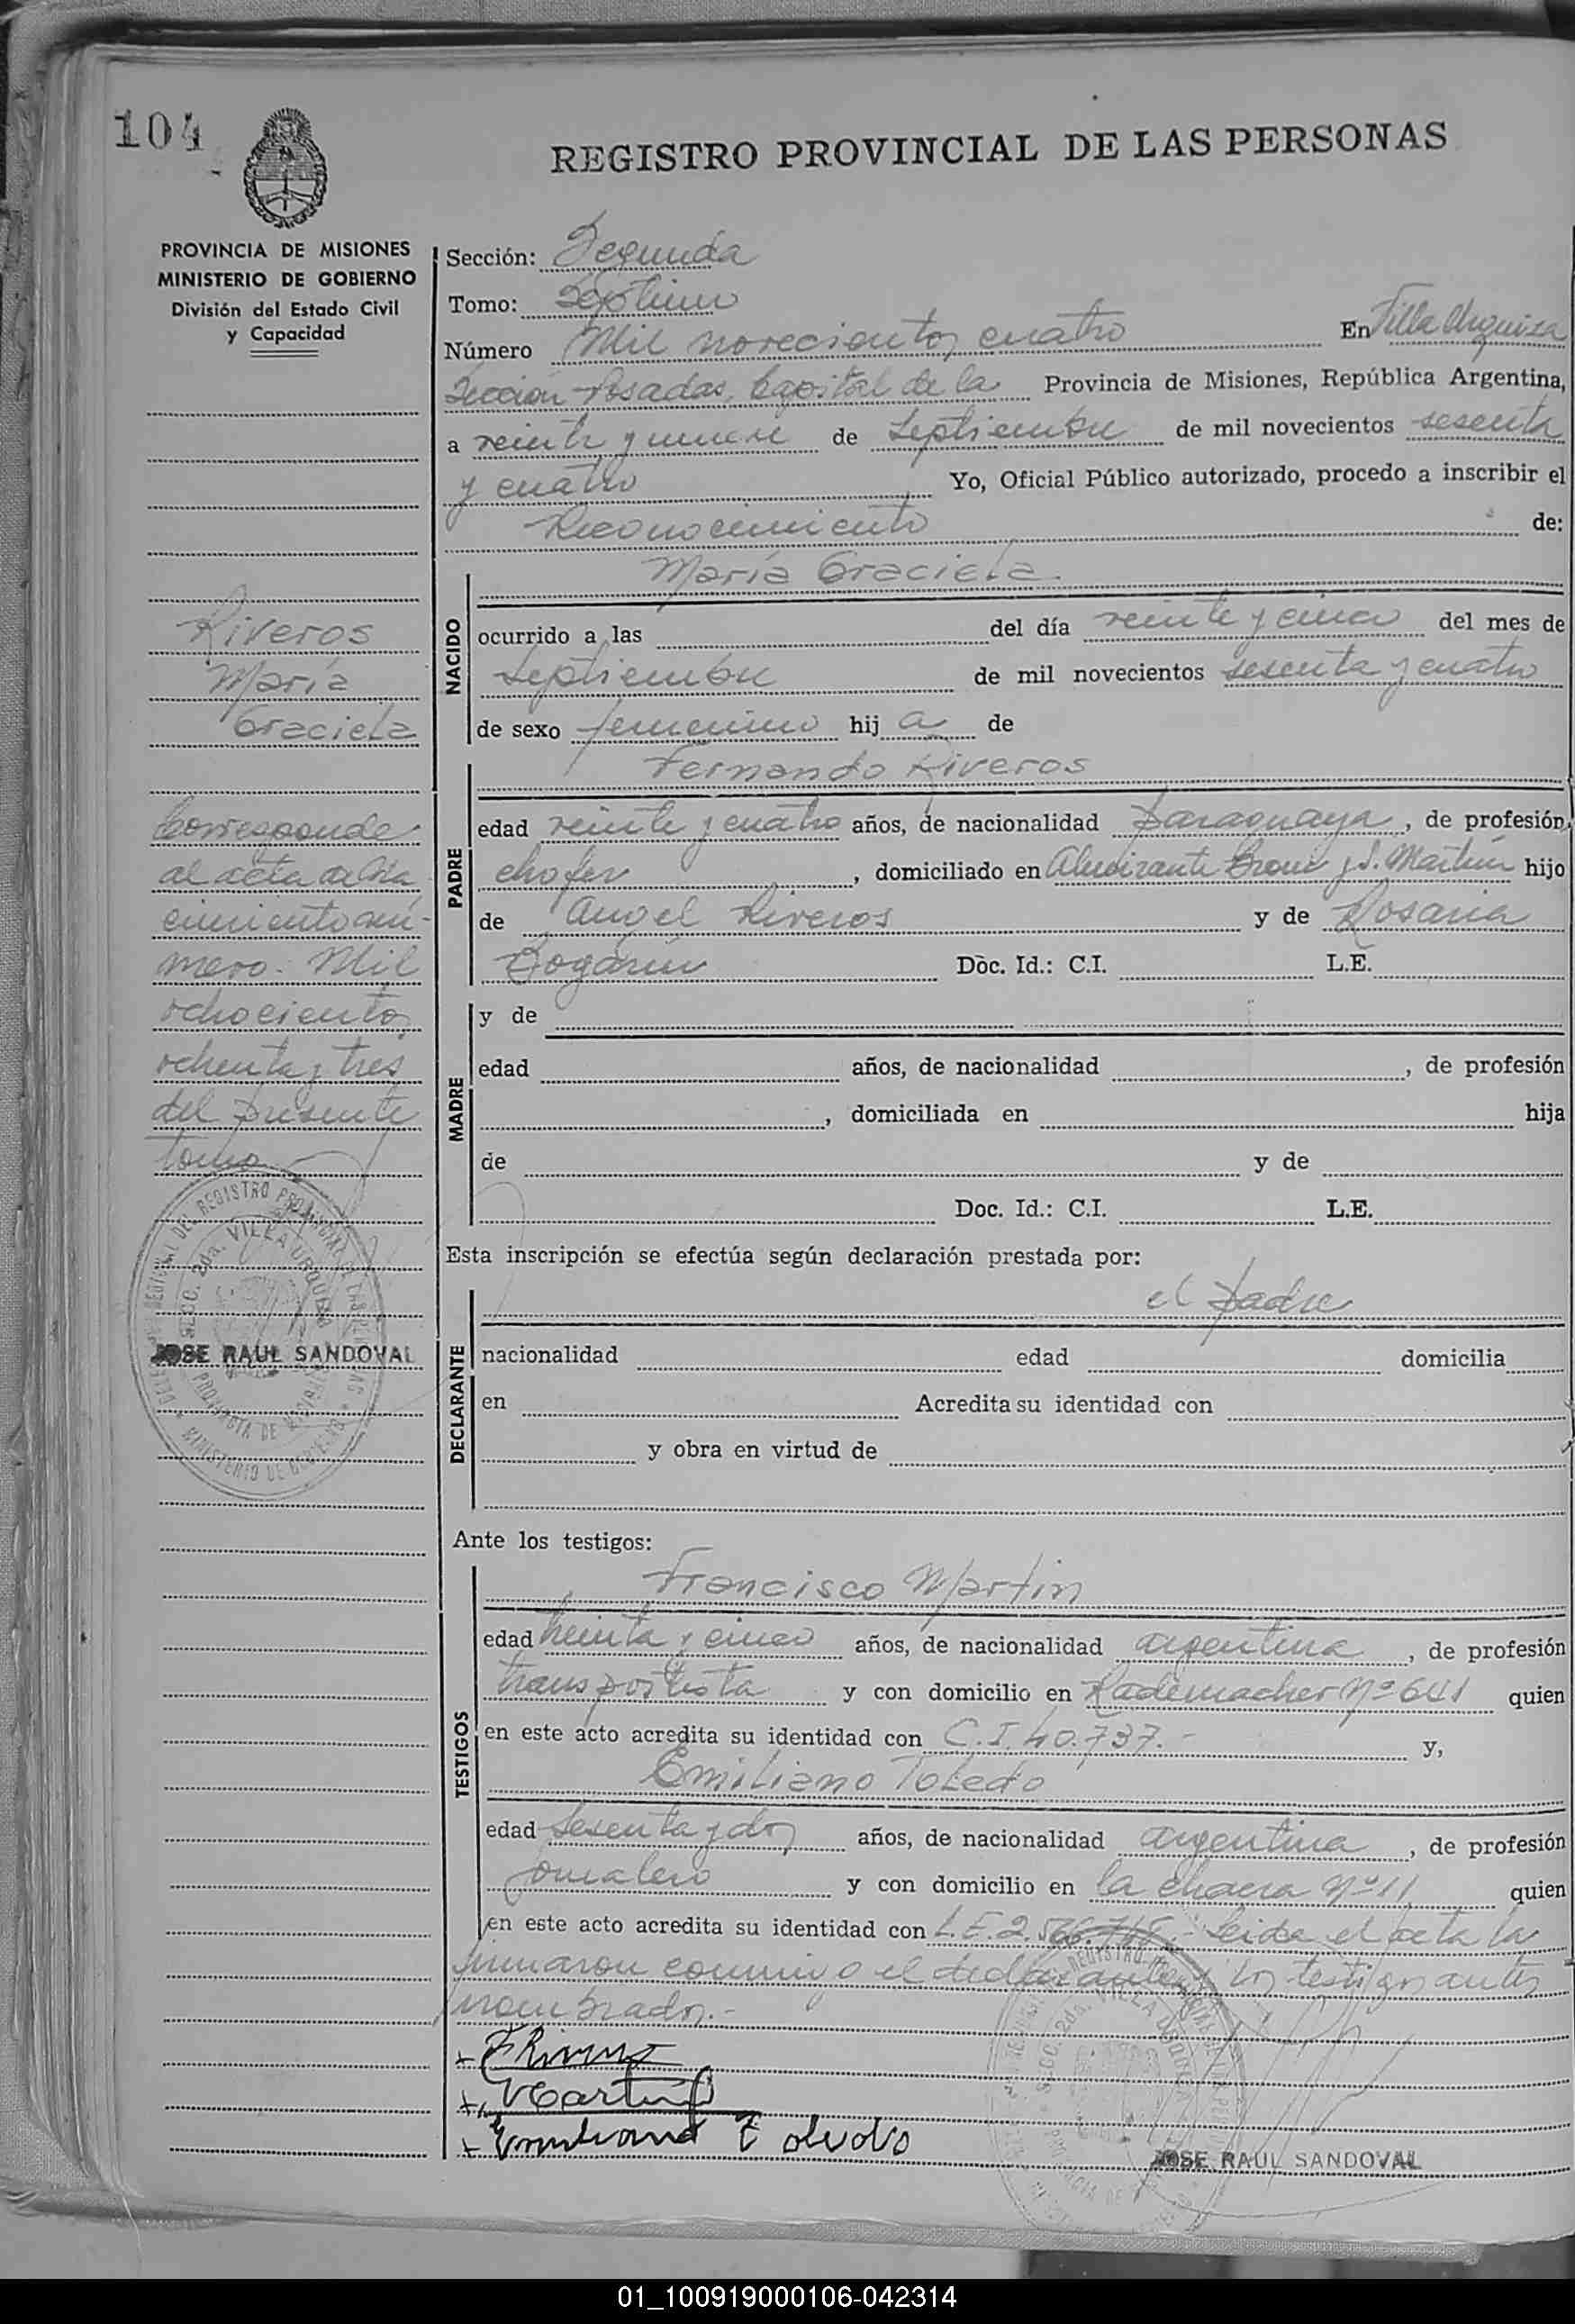 104
REGISTRO PROVINCIAL DE LAS PERSONAS
PROVINCIA DE MISIONES
MINISTERIO DE GOBIERNO
División del Estado Civil
y Capacidad
Riveros
María
Graciela
Corresponde
al acta de Na
cimiento nú-
mero. Mil
ochocientos
ochenta y tres
del presente
tomo
JOSE RAUL SANDOVAL
Sección: Segunda
Tomo: Séptimo
Número Mil novecientos cuatro En Villa Urquiza
Sección Posadas, Capital de la Provincia de Misiones, República Argentina,
a veinte y nueve de Septiembre de mil novecientos sesenta
y cuatro Yo, Oficial Público autorizado, procedo a inscribir el
Reconocimiento de:
María Graciela
NACIDO
ocurrido a las del día veinte y cinco del mes de
Septiembre de mil novecientos sesenta y cuatro
de sexo femenino hij a de
Fernando Riveros
PADRE
edad veinte y cuatro años, de nacionalidad paraguaya, de profesión
chofer, domiciliado en Almirante Brown y S. Martín hijo
de Angel Riveros y de Rosaria
Bogarín Doc. Id.: C.I. L.E.
MADRE
y de
edad años, de nacionalidad , de profesión
, domiciliada en hija
de y de
Doc. Id.: C.I. L.E.
Esta inscripción se efectúa según declaración prestada por:
el padre
DECLARANTE
nacionalidad edad domicilia
en Acredita su identidad con
y obra en virtud de
Ante los testigos:
Francisco Martin
TESTIGOS
edad treinta y cinco años, de nacionalidad argentina, de profesión
transportista y con domicilio en Rademacher Nº 641 quien
en este acto acredita su identidad con C.I. 40.737.- y,
Emiliano Toledo
edad sesenta y dos años, de nacionalidad argentina, de profesión
jornalero y con domicilio en la chacra Nº 11 quien
en este acto acredita su identidad con L.E. 2. Leida el acta la
firmaron conmigo el declarante y los testigos antes
nombrados.-
Emiliano Toledo
JOSE RAUL SANDOVAL
01_100919000106-042314